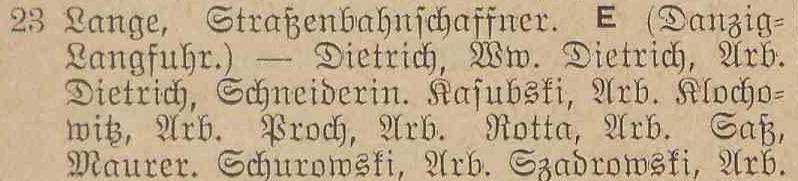 23 Lange, Straßenbahnschaffner. E (Danzig-
Langfuhr.) — Dietrich, Ww. Dietrich, Arb.
Dietrich, Schneiderin. Kasubski, Arb. Klocho-
witz, Arb. Proch, Arb. Rotta, Arb. Saß,
Maurer. Schurowski, Arb. Szadrowski, Arb.